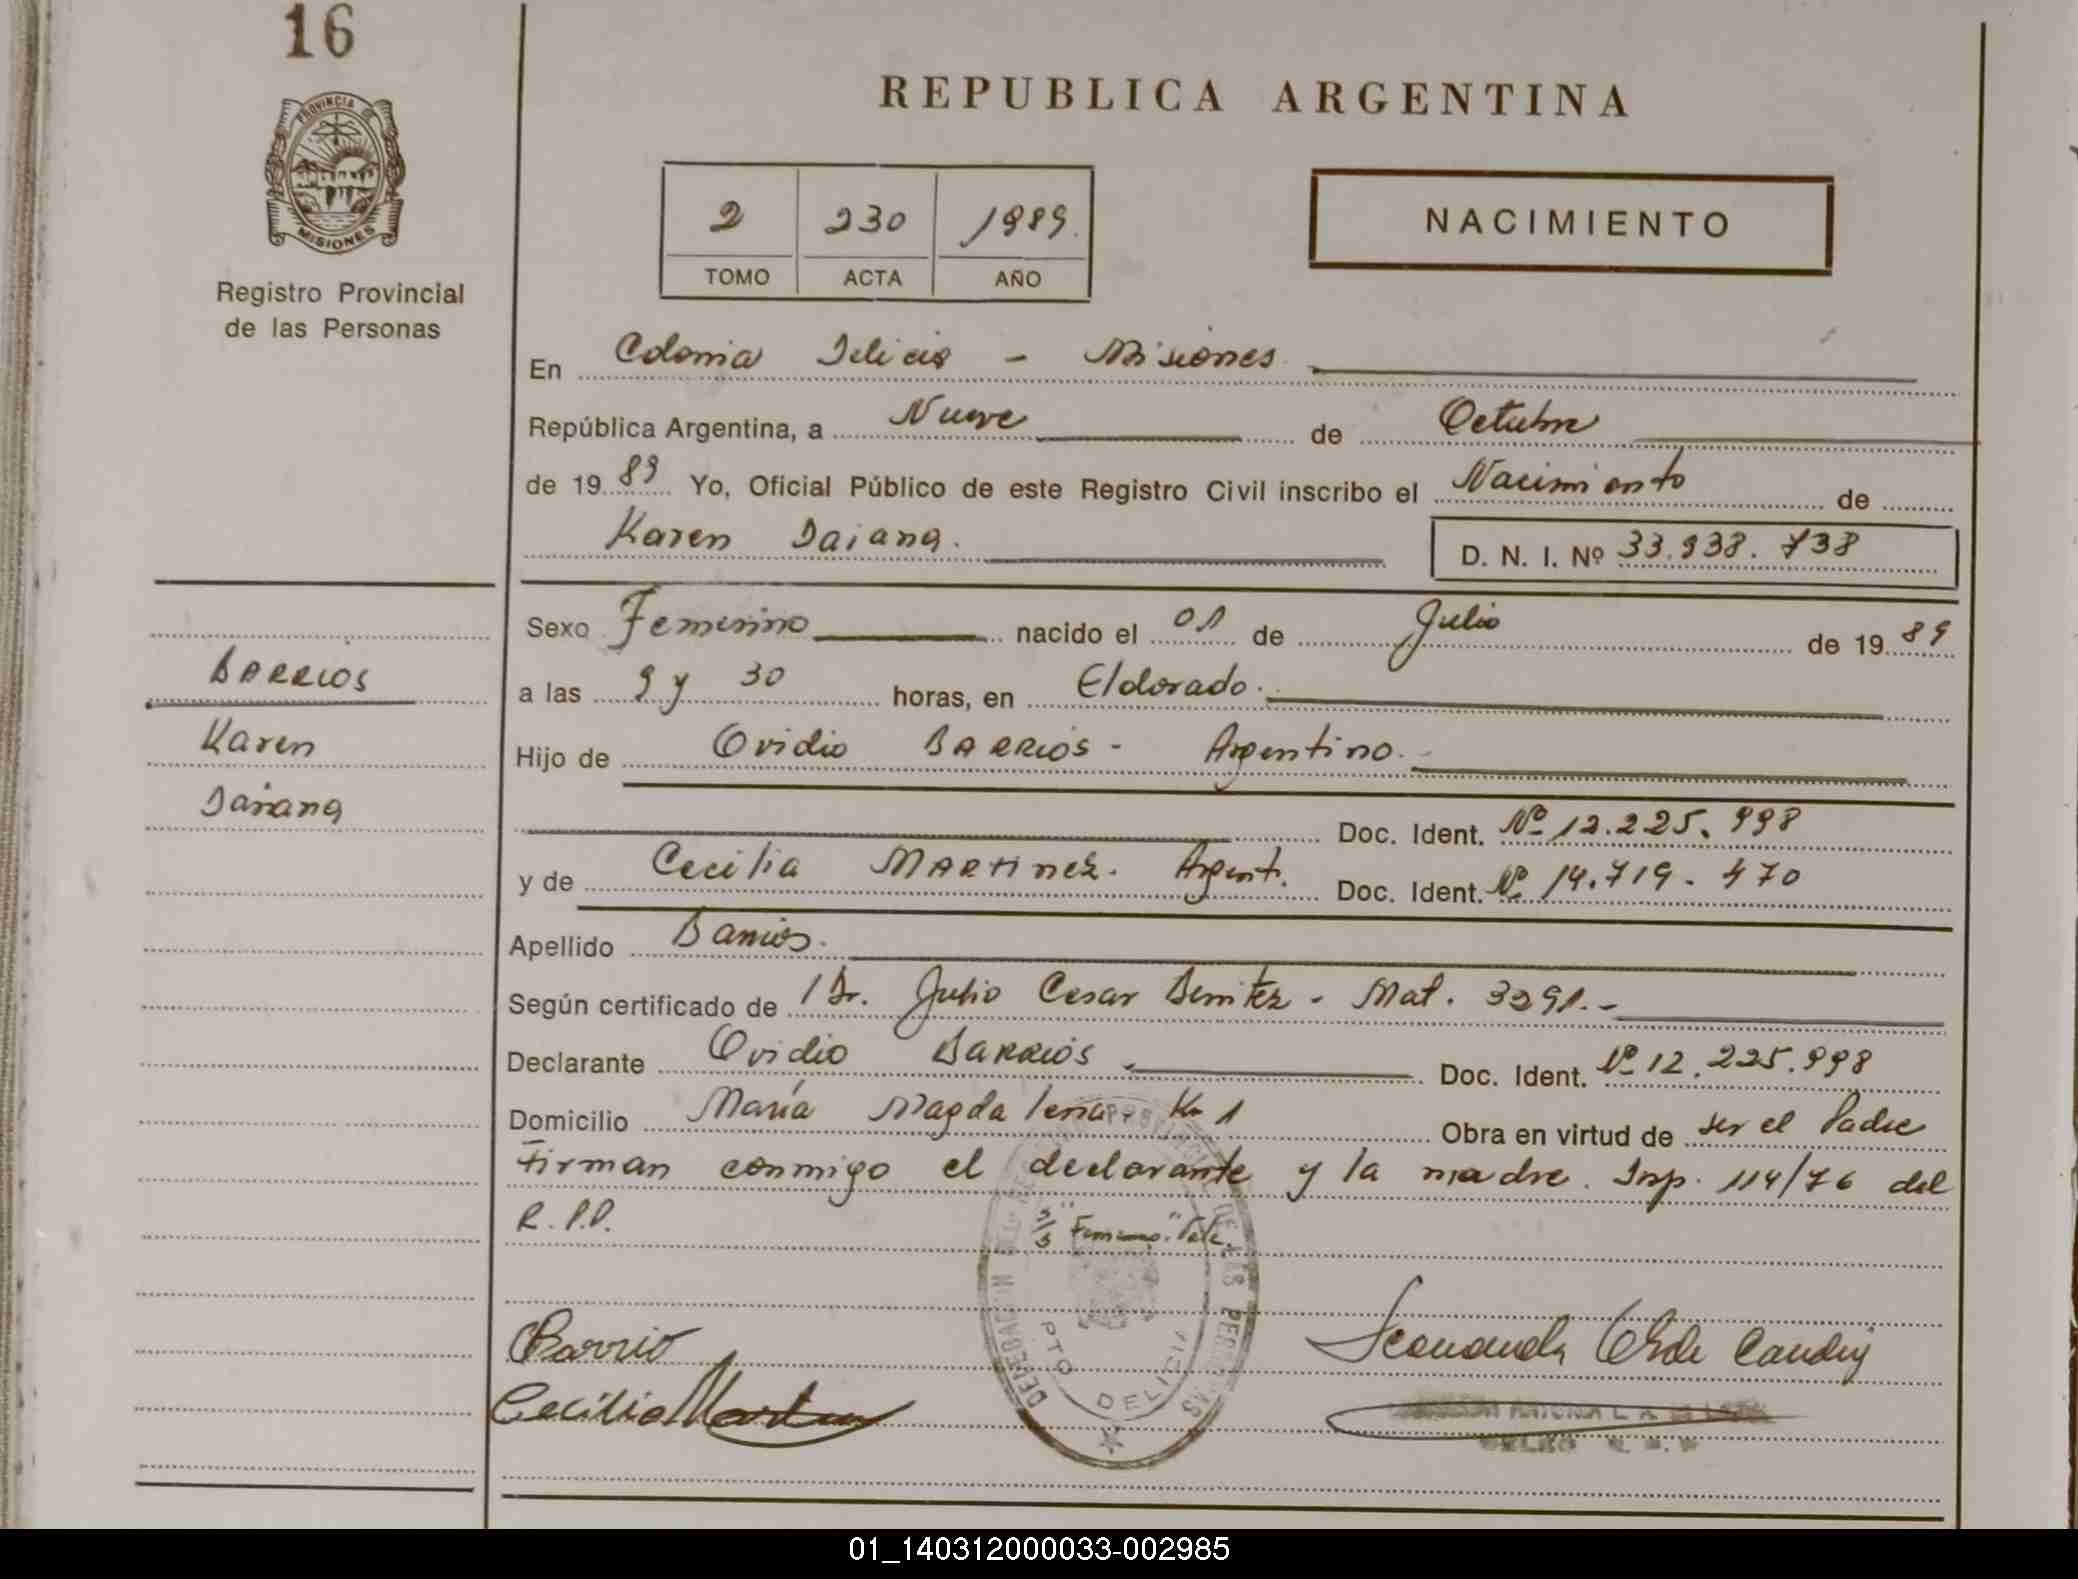 16
PROVINCIA DE
MISIONES
Registro Provincial
de las Personas
REPUBLICA ARGENTINA
2 230 1989.
TOMO ACTA AÑO
NACIMIENTO
En Colonia Delicia - Misiones
República Argentina, a Nueve de Octubre
de 19 89 Yo, Oficial Público de este Registro Civil inscribo el Nacimiento de
Karen Daiana. D. N. I. Nº 33.938.738
Sexo Femenino nacido el 01 de Julio de 19 89
a las 9 y 30 horas, en Eldorado.
Hijo de Ovidio BARRIOS - Argentino.
Doc. Ident. Nº 12.225.998
y de Cecilia MARTINEZ. Argent. Doc. Ident. Nº 14.719.470
Apellido Barrios.
Según certificado de Dr. Julio Cesar Benitez - Mat. 3291.-
Declarante Ovidio BARRIOS Doc. Ident. Nº 12.225.998
Domicilio María Magdalena. Km 1 Obra en virtud de ser el Padre
Firman conmigo el declarante y la madre. Insp. 114/76 del
R.P.P.
S/S "Femenino" Vale.
BARRIOS
Karen
Daiana
Barrio
Cecilia Martinez
DELEGACION DEL REGISTRO PROVINCIAL DE LAS PERSONAS
PTO DELICIA
01_140312000033-002985